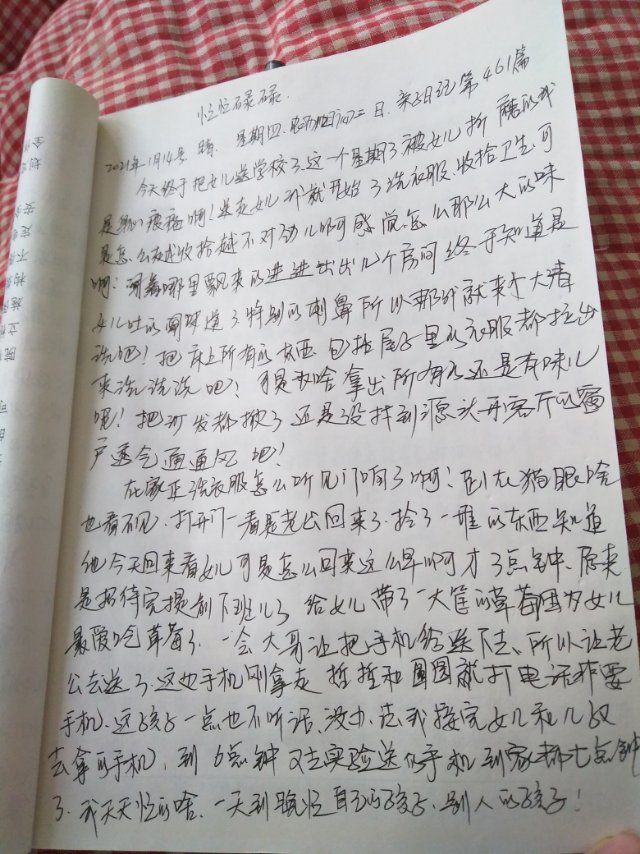 忙忙碌碌.
2021年1月14号 晴. 星期四. 农历 初二日. 亲子日记第461篇
今天终于把女儿送学校了.这一个星期了被女儿折磨的我
是身心疲惫啊!送走女儿我就开始了洗衣服.收拾卫生.可
是怎么越收拾越不对劲儿的啊感觉怎么那么大的味
啊!闻着哪里飘来的进进出出几个房间终于知道是
女儿吐的 味道了特别的刺鼻所以那我就来个大清
洗吧!把床上所有的东西包括 子里的衣服都拉出
来洗洗洗吧!可是为啥拿出所有的还是有味儿
呢!把沙发都掀了还是没找到源头开客厅的窗
户透气通通风吧!
在家正洗衣服怎么听见门响了啊!趴在猫眼啥
也看不见.打开门一看是老公回来了.拾了一堆的东西知道
他今天回来看女儿可是怎么回来这么早啊才 点钟.原来
是招待完提前下班儿了给女儿带了一大筐的草莓因为女儿
最爱吃草莓了.一会大哥让把手机给送下去、所以让老
公去送了.这边手机刚拿走 哲哲和圆圆就打电话非要
手机.这孩子一点也不听话、没办法我接完女儿和儿 又
去拿的手机、到6点钟又去实验送的手机到家都七点钟
了.我天天忙的啥.一天到晚忙自己的孩子.别人的孩子!